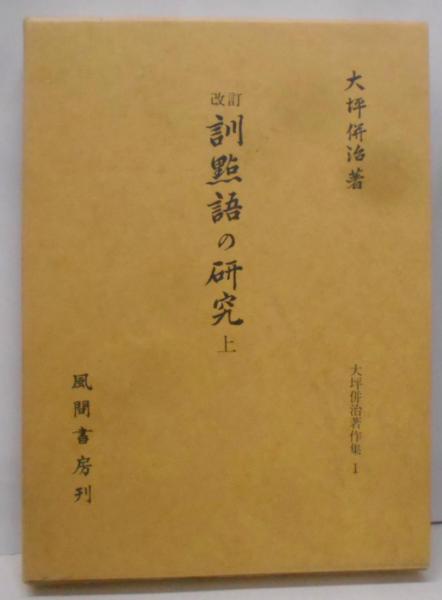 大坪併治著
改訂
訓點語の研究 上
大坪併治著作集 1
風間書房刊